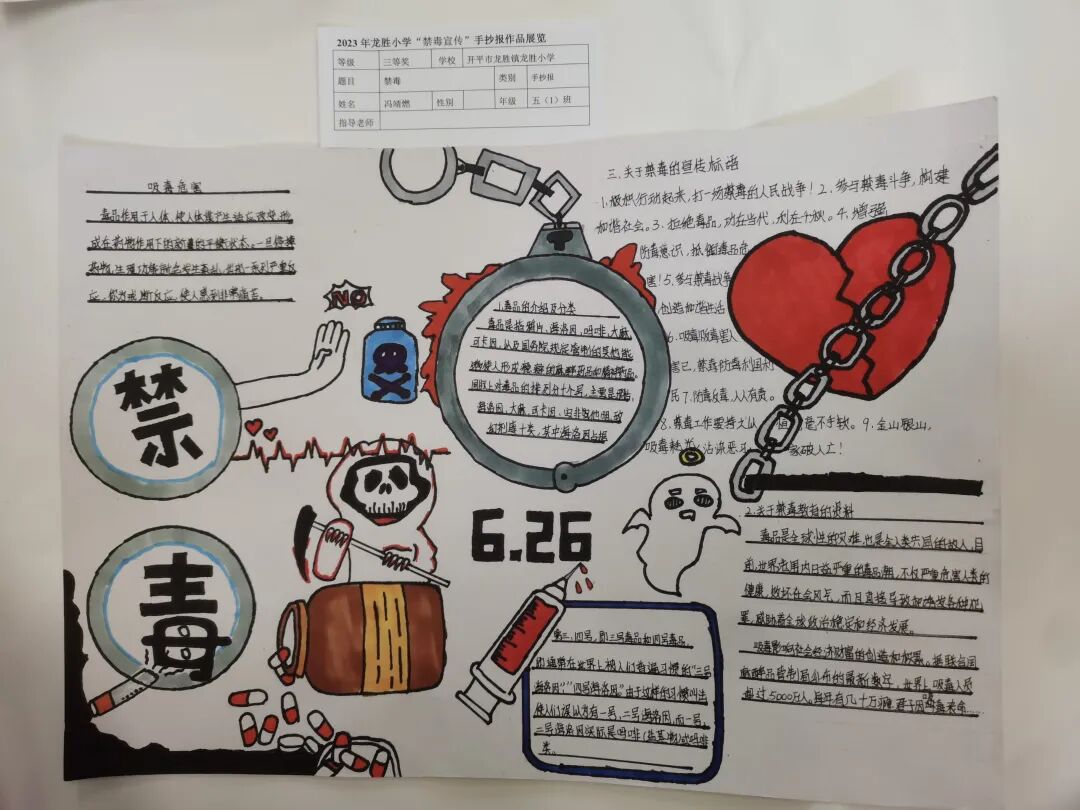 2023 年龙胜小学“禁毒宣传”手抄报作品展览
等级 三等奖 学校 开平市龙胜镇龙胜小学
题目 禁毒 类别 手抄报
姓名 冯靖燃 性别 年级 五（1）班
指导老师
吸毒危害
毒品作用于人体,使人体
成在药物作用下的 平衡状态。一旦停掉
药物,生理功能就会发生紊乱,出现一系列严重反
应,使人感到非常痛苦。
NO
禁
毒
1.毒品的介绍及分类
毒品是指鸦片、海洛因、吗啡、大麻、
可卡因,以及国务院规定管制的其他能
够使人形成瘾癖的麻醉药品和精神药品。
海洛因、大麻、可卡因、
等十类,其中海洛因占据
三、关于禁毒的宣传标语
1.积极行动起来,打一场禁毒的人民战争！2.参与禁毒斗争,构建
和谐社会。3.拒绝毒品,功在当代,利在千秋。4.增强
防毒意识,抵制毒品危
害！5.参与禁毒战争
创造和谐生活
6.吸毒贩毒害人
害己,禁毒防毒利国利
民 7.防毒反毒,人人有责。
8.禁毒工作要持之以 恒 是不手软。9.金山银山,
吸毒 沾染恶习 家破人亡！
6.26
2.关于禁毒教育的资料
毒品是全球性的灾难,也是全人类共同的敌人,目
前,世界范围内日益严重的毒品潮,不仅严重危害人类的
健康,败坏社会风气,而且直接导致和诱发各种犯
罪,威胁着全球政治稳定和经济发展。
吸毒影响社会经济财富的创造和积累。据联合国
麻醉品管制局公布的最新数字,世界上吸毒人员
超过5000万人,每年有几十万瘾君子因吸毒丧命……
第三、四号,即三号毒品和四号毒品
的通常在世界上被人们普遍习惯的“三号
海洛因”“四号海洛因。”由于这样的习惯叫法
使人们误以为有一号、二号海洛因,而一号、
二号海洛因实际是吗啡(盐基物)或吗啡
类。